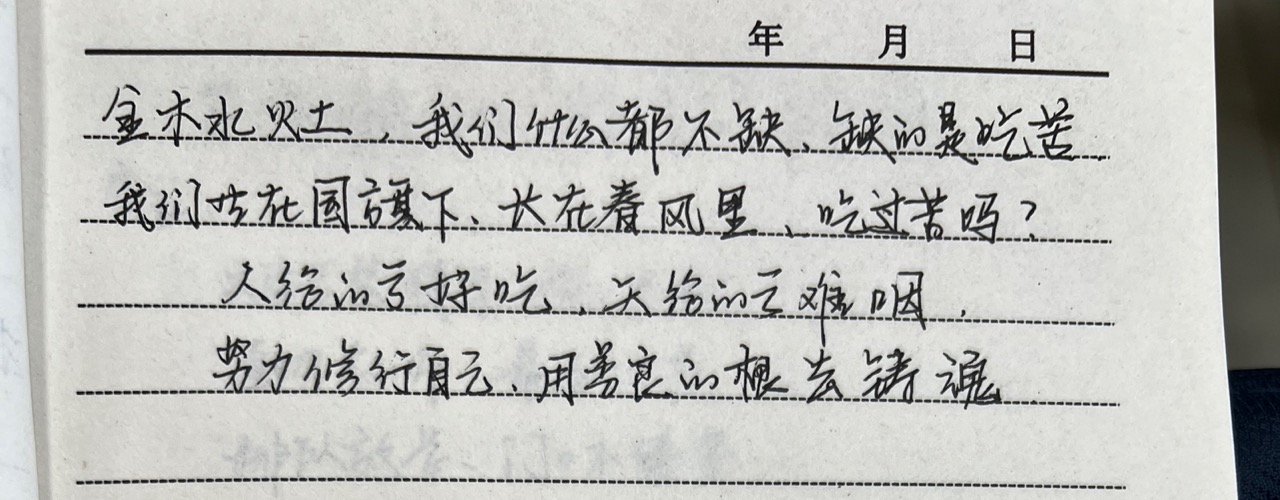 年 月 日
金木水火土，我们什么都不缺、缺的是吃苦
我们站在国旗下、长在春风里、吃过苦吗？
人给的亏好吃、天给的亏难咽，
努力修行自己、用善良的根去铸魂